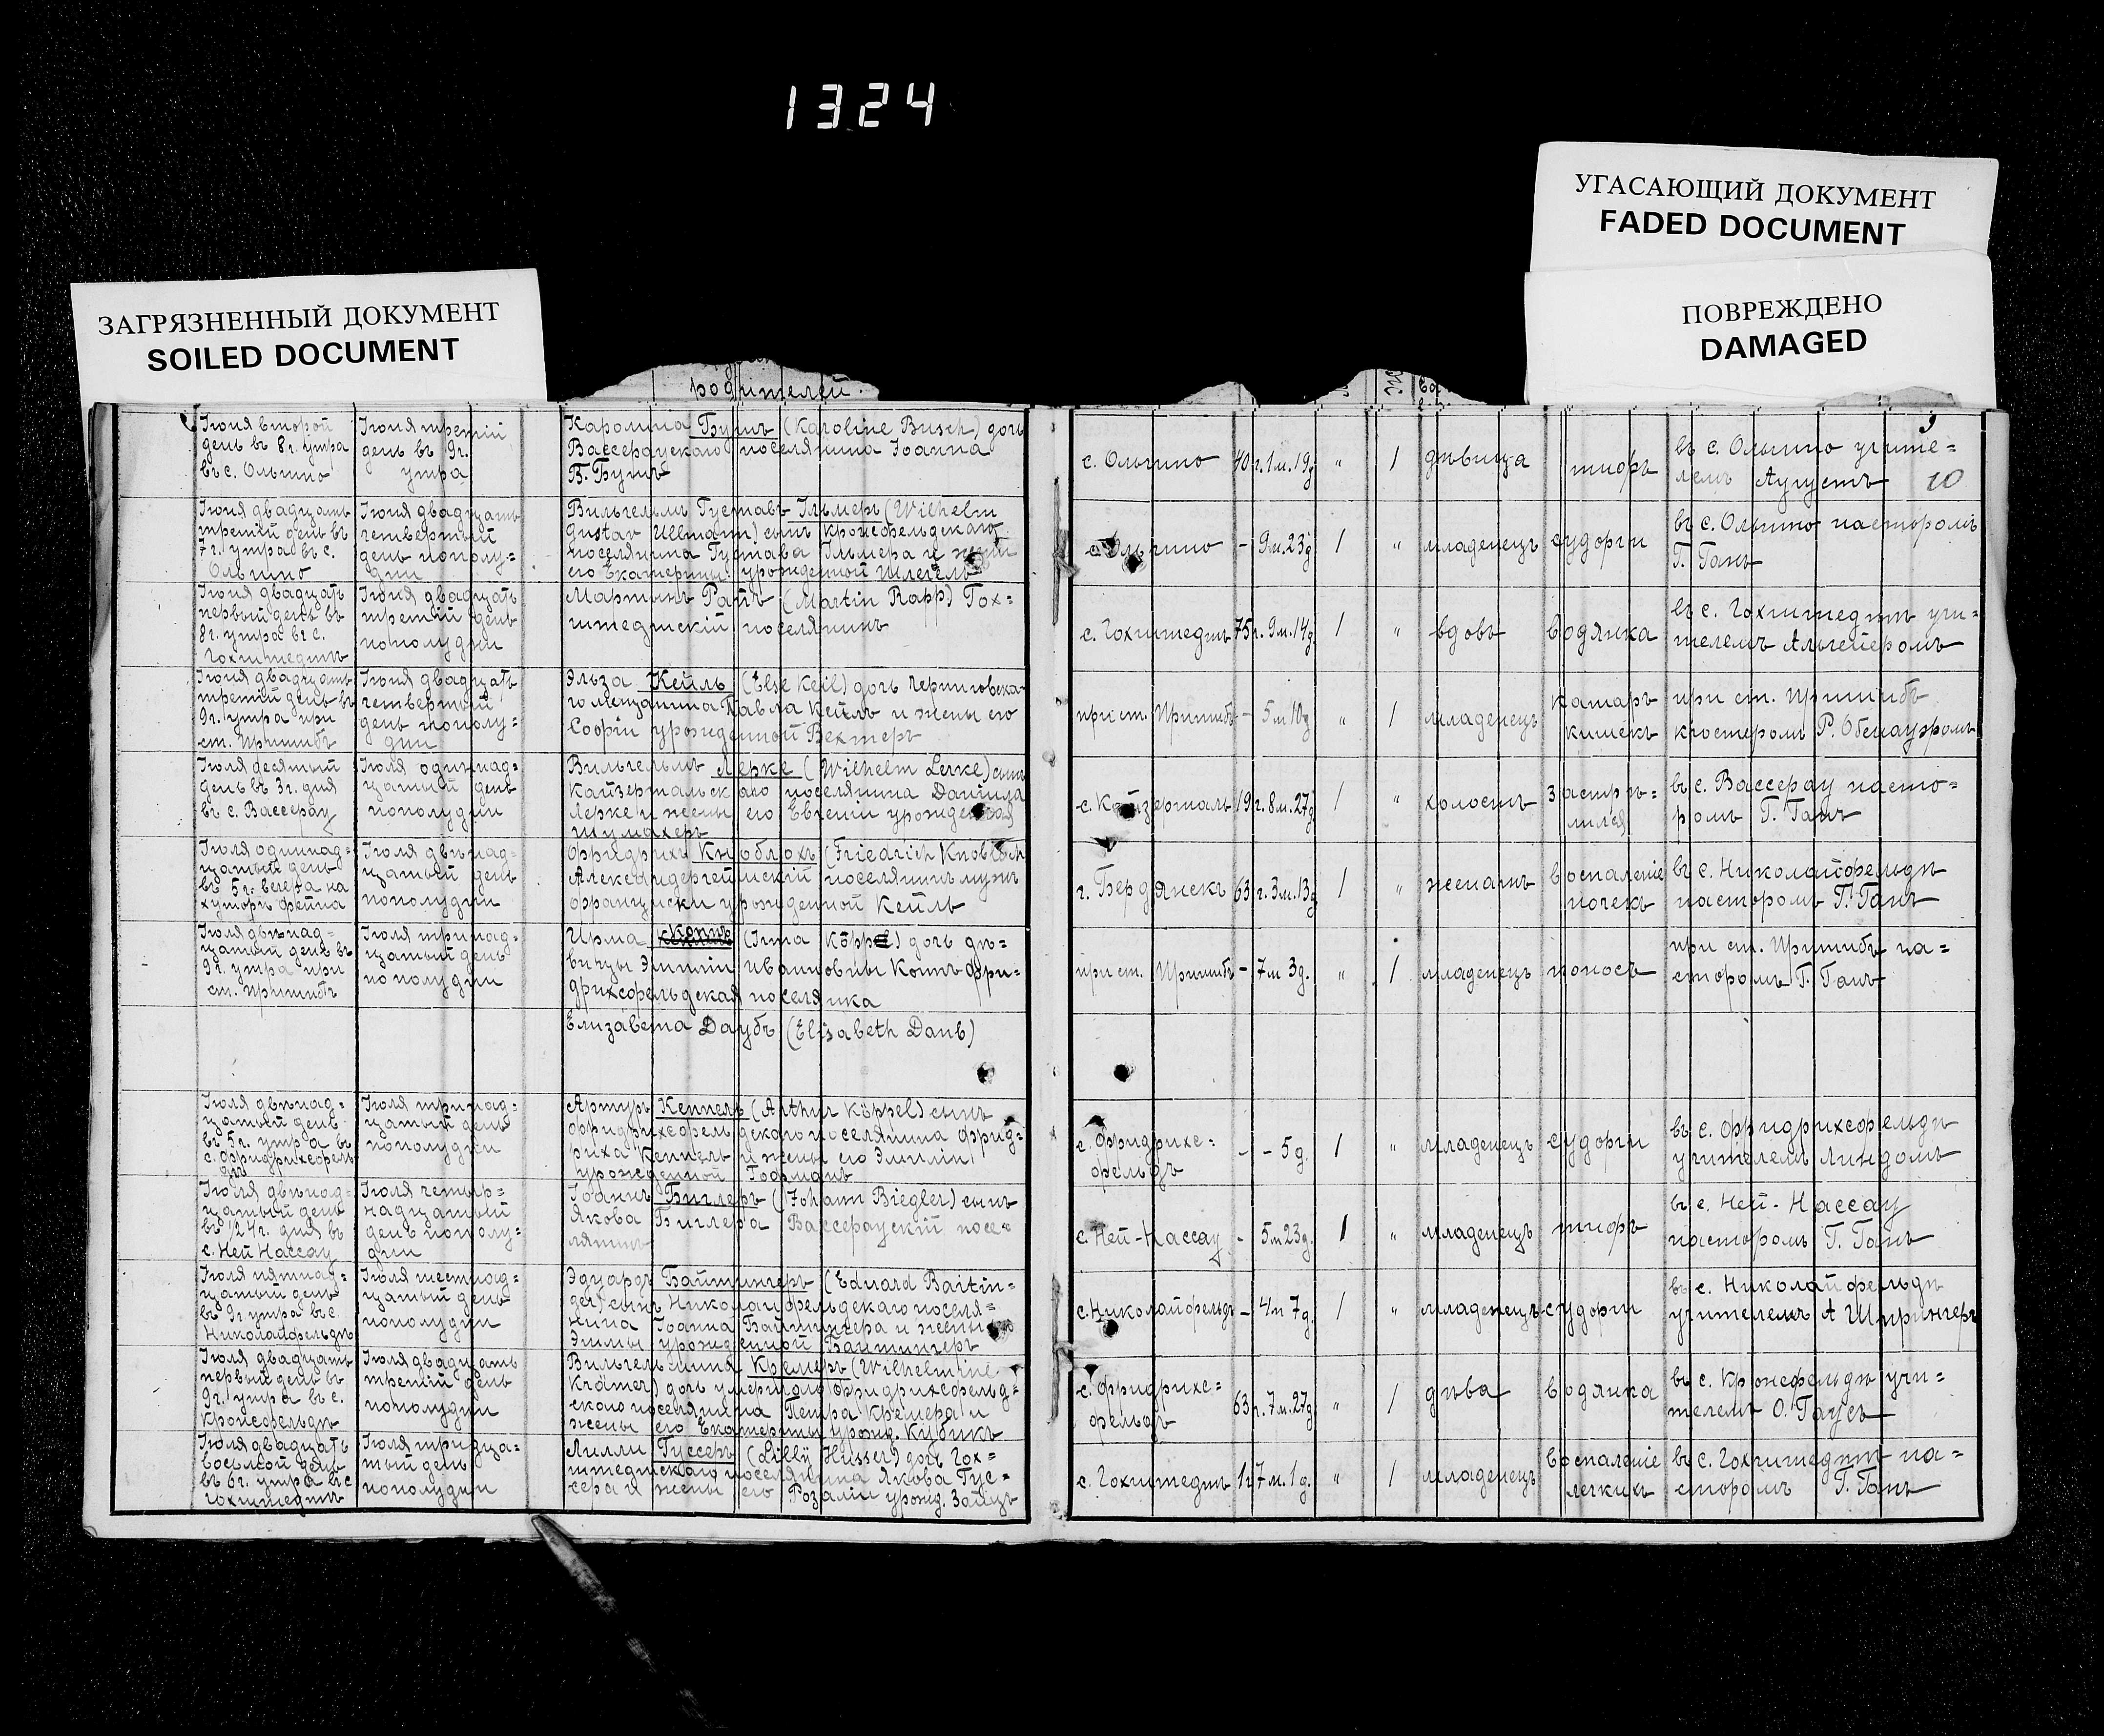 1324
УГАСАЮЩИЙ ДОКУМЕНТ
FADED DOCUMENT
ПОВРЕЖДЕНО
DAMAGED
ЗАГРЯЗНЕННЫЙ ДОКУМЕНТ
SOILED DOCUMENT
родителей.
9
10
Іюня второй
день въ 8 г. утра
въ с. Ольгино
Іюня третій
день въ 9 г.
утра
Каролина Бушъ (Karoline Busch) дочь
Вассераускаго поселянина Іоанна
Б. Бушъ
с. Ольгино 40 г. 1 м. 19 д. " 1 дѣвица тифъ
въ с. Ольгино учите=
лемъ Аугустъ
Іюня двадцать
третій день въ
7 г. утра въ с.
Ольгино
Іюня двадцать
четвертый
день пополу=
дни
Вильгельмъ Густавъ Ильмеръ (Wilhelm
Gustav Ullmann) сынъ Кронсфельдскаго
поселянина Густава Ильмера и жены
его Екатерины урожденной Шлегель
с. Ольгино - 9 м. 23 д 1 " младенецъ судорги
въ с. Ольгино пасторомъ
Г. Ганъ
Іюня двадцать
первый день въ
8 г. утра въ с.
Гохштедтъ
Іюня двадцать
третій день
пополудни
Мартынъ Рапъ (Martin Rapp) Гох=
штедтскій поселянинъ
с. Гохштедтъ 75 г. 9 м. 14 д 1 " вдовъ водянка
въ с. Гохштедтъ учи=
телемъ Альгейеромъ
Іюня двадцать
третій день въ
9 г. утра при
ст. Пришибъ
Іюня двадцать
четвертый
день пополу=
дни
Эльза Кейль (Else Keil) дочь Черниговска=
го мещанина Павла Кейль и жены его
Софіи урожденной Вехтеръ
при ст. Пришибъ - 5 м 10 д " 1 младенецъ катаръ
кишекъ
при ст. Пришибъ
кюстеромъ Р. Обенауэромъ
Іюля десятый
день въ 3 г. дня
въ с. Вассерау
Іюля одиннад=
цатый день
пополудни
Вильгельмъ Лерке (Wilhelm Lerke) сынъ
Кайзертальскаго поселянина Даніила
Лерке и жены его Евгеніи урожденной
Шумахеръ
с. Кайзерталь 19 г. 8 м. 27 д 1 " холостъ застрѣ=
лился
въ с. Вассерау пасто=
ромъ Г. Ганъ
Іюля одиннад=
цатый день
въ 5 г. вечера на
хуторѣ Фейна
Іюля двѣнад=
цатый день
пополудни
Фридрихъ Кноблохъ (Friedrich Knobloch
Александергеймскій поселянинъ мужъ
Франциски урожденной Кейль
г. Бердянскъ 63 г. 3 м. 13 д 1 " женатъ воспаленіе
почекъ
въ с. Николайфельдъ
пасторомъ Г. Ганъ
Іюля двѣнад=
цатый день въ
9 г. утра при
ст. Пришибъ
Іюля тринад=
цатый день
пополудни
Ирма Коппъ (Irma Köppe) дочь дѣ=
вицы Эмиліи Ивановны Коппъ Фри=
дрихсфельдская поселянка
при ст. Пришибъ - 7 м 3 д. " 1 младенецъ поносъ
при ст. Пришибъ па=
сторомъ Г. Ганъ
Елизавета Даубъ (Elisabeth Daub)
Іюля двѣнад=
цатый день
въ 5 г. утра въ
с. Фридрихсфель=
дъ
Іюля тринад=
цатый день
пополудни
Артуръ Кеппель (Arthur Köppel) сынъ
Фридрихсфельдскаго поселянина Фрид=
риха Кеппель и жены его Эмиліи
урожденной Гофманъ
с. Фридрихс=
фельдъ - - 5 д. 1 " младенецъ судорги
въ с. Фридрихсфельдъ
учителемъ Линдомъ
Іюля двѣнад=
цатый день
въ 1/2 4 г. дня въ
с. Ней Нассау
Іюля четыр=
надцатый
день пополу=
дни
Іоаннъ Биглеръ (Johann Biegler) сынъ
Якова Биглера Вассераускій посе=
лянинъ
с. Ней-Нассау - 5 м 23 д. 1 " младенецъ тифъ
въ с. Ней-Нассау
пасторомъ Г. Ганъ
Іюля пятнад=
цатый день
въ 9 г. утра въ с.
Николайфельдъ
Іюля шестнад=
цатый день
пополудни
Эдуардъ Байтингеръ (Eduard Baitin=
ger) сынъ Николайфельдскаго поселя=
нина Іоанна Байтингера и жены его
Эммы урожденной Байтингеръ
с. Николайфельдъ - 4 м 7 д. 1 " младенецъ судорги
въ с. Николайфельдъ
учителемъ А Шпрингеръ
Іюля двадцать
первый день въ
9 г. утра въ с.
Кронсфельдъ
Іюля двадцать
третій день
пополудни
Вильгельмина Кремеръ (Wilhelmine
Krämer) дочь умершаго Фридрихсфельд=
скаго поселянина Петра Кремера и
жены его Екатерины урожд. Кубикъ
с. Фридрихс=
фельдъ 63 г. 7 м. 27 д " 1 дѣва водянка
въ с. Кронсфельдъ учи=
телемъ О. Гаусъ
Іюля двадцать
восьмой день
въ 6 г. утра въ с
Гохштедтъ
Іюля тридца=
тый день
пополудни
Лилли Гуссеръ (Lilly Husser) дочь Гох=
штедтскаго поселянина Якова Гус=
сера и жены его Розаліи урожд. Зайцъ
с. Гохштедтъ 1 г 7 м. 1 д. " 1 младенецъ воспаленіе
легкихъ
въ с. Гохштедтъ па=
сторомъ Г. Ганъ